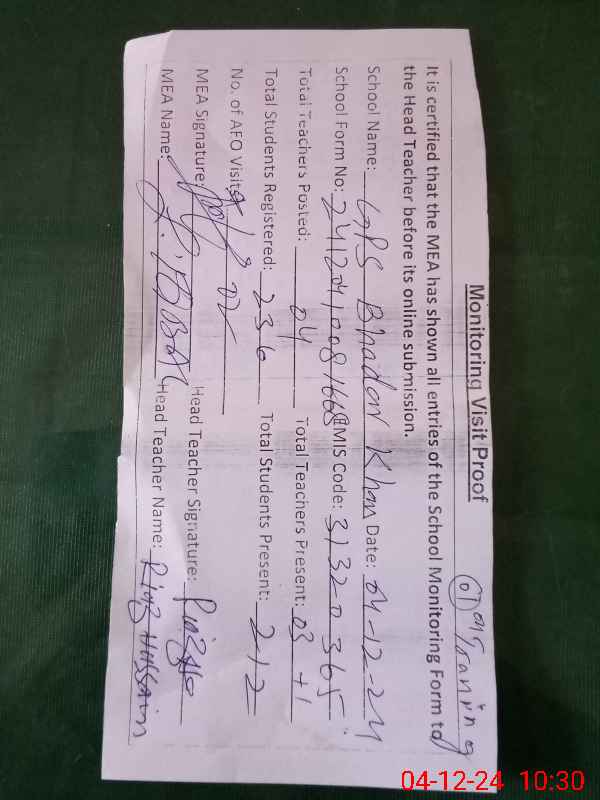 Monitoring Visit Proof
01 on Training
It is certified that the MEA has shown all entries of the School Monitoring Form to
the Head Teacher before its online submission.
School Name: GPS Bhadon Khan Date: 04-12-24
School Form No: 2412041008 EMIS Code: 31320365
Total Teachers Posted: 04 Total Teachers Present: 03 + 1
Total Students Registered: 236 Total Students Present: 212
No. of AEO Visits 02
MEA Signature: Head Teacher Signature:
MEA Name: Head Teacher Name: Riaz Hussain
04-12-24 10:30